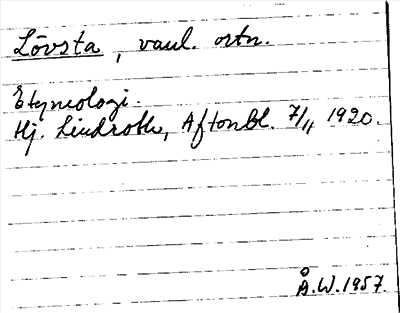 Lövsta, vanl. ortn.
Etymologi.
Hj. Lindroth, Aftonbl. 7/11 1920.
Å.W.1957.